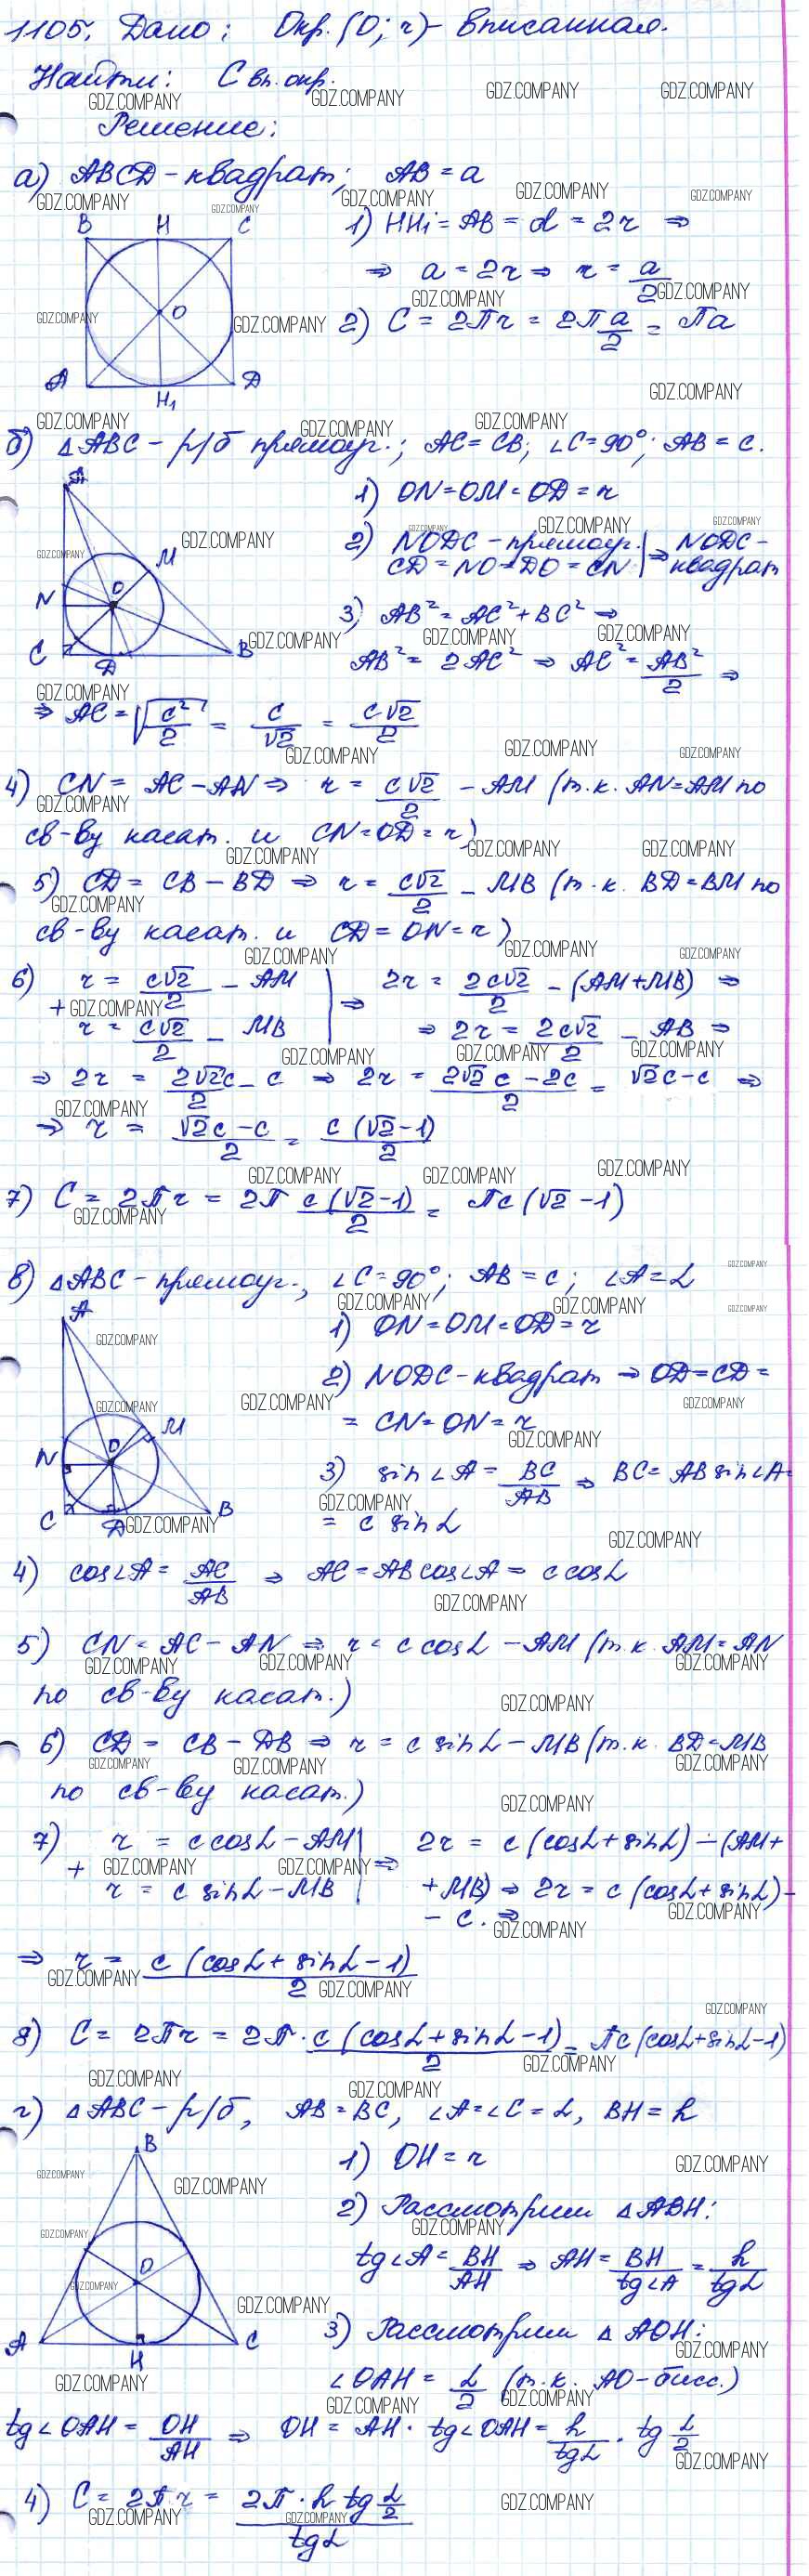 1105. Дано: Окр. (O; r) - вписанная.
Найти: C вп. окр.
Решение:
а) ABCD - квадрат; AB = a
B H C
O
A H₁ D
1) HH₁ = AB = d = 2r ⇒
⇒ a = 2r ⇒ r = a/2
2) C = 2πr = 2π a/2 = πa
б) △ABC - р/б прямоуг.; AC = CB; ∠C = 90°; AB = c.
A
M
N O
C D B
1) ON = OM = OD = r
2) NODC - прямоуг. | ⇒ NODC -
CD = NO = DO = CN | квадрат
3) AB² = AC² + BC² ⇒
AB² = 2AC² ⇒ AC² = AB²/2 ⇒
⇒ AC = √(c²/2) = c/√2 = c√2/2
4) CN = AC - AN ⇒ r = c√2/2 - AM (т.к. AN = AM по
св-ву касат. и CN = OD = r)
5) CD = CB - BD ⇒ r = c√2/2 - MB (т.к. BD = BM по
св-ву касат. и CD = ON = r)
6) r = c√2/2 - AM | 2r = 2c√2/2 - (AM + MB) ⇒
+ r = c√2/2 - MB | ⇒ ⇒ 2r = 2c√2/2 - AB ⇒
⇒ 2r = 2√2c/2 - c ⇒ 2r = (2√2c - 2c)/2 = √2c - c ⇒
⇒ r = (√2c - c)/2 = c(√2 - 1)/2
7) C = 2πr = 2π c(√2 - 1)/2 = πc(√2 - 1)
в) △ABC - прямоуг., ∠C = 90°; AB = c; ∠A = α
A
M
N O
C D B
1) ON = OM = OD = r
2) NODC - квадрат ⇒ OD = CD =
= CN = ON = r
3) sin∠A = BC/AB ⇒ BC = AB sin∠A =
= c sinα
4) cos∠A = AC/AB ⇒ AC = AB cos∠A = c cosα
5) CN = AC - AN ⇒ r = c cosα - AM (т.к. AM = AN
по св-ву касат.)
6) CD = CB - DB ⇒ r = c sinα - MB (т.к. BD = MB
по св-ву касат.)
7) r = c cosα - AM | 2r = c(cosα + sinα) - (AM +
+ r = c sinα - MB | ⇒ + MB) ⇒ 2r = c(cosα + sinα) -
- c. ⇒
⇒ r = c(cosα + sinα - 1)/2
8) C = 2πr = 2π · c(cosα + sinα - 1)/2 = πc(cosα + sinα - 1)
г) △ABC - р/б, AB = BC, ∠A = ∠C = α, BH = h
B
O
A H C
1) OH = r
2) Рассмотрим △ABH:
tg∠A = BH/AH ⇒ AH = BH/tg∠A = h/tgα
3) Рассмотрим △AOH:
∠OAH = α/2 (т.к. AO - бисс.)
tg∠OAH = OH/AH ⇒ OH = AH · tg∠OAH = h/tgα · tg α/2
4) C = 2πr = 2π · h tg α/2 / tgα
GDZ.COMPANY